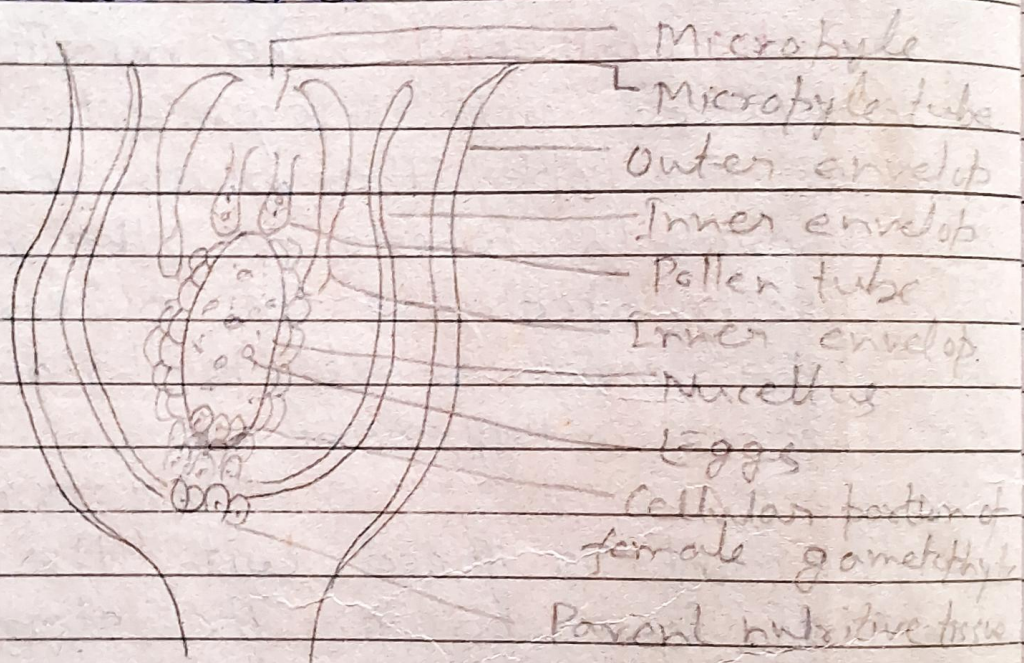 Micropyle
Micropyle tube
Outer envelop
Inner envelop
Pollen tube
Inner envelop
Nucellus
Eggs
Cellular portion of
female gametophyte
Parent nutritive tissue